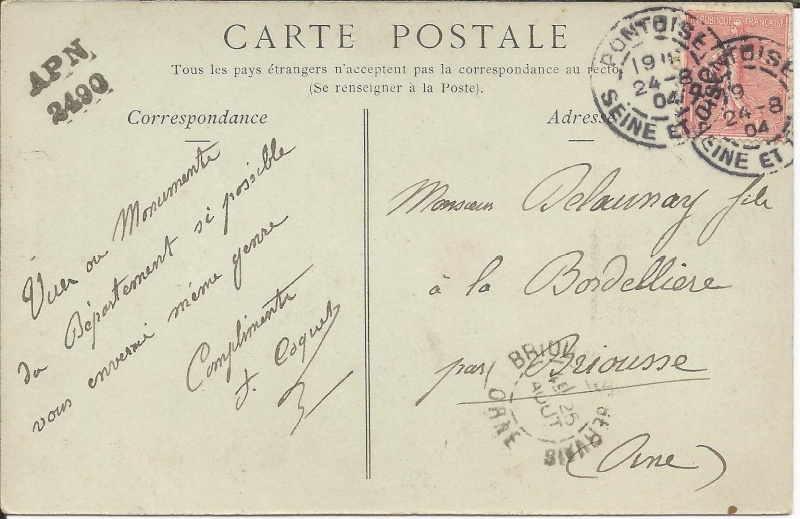 CARTE POSTALE
Tous les pays étrangers n'acceptent pas la correspondance au recto
(Se renseigner à la Poste).
APN
2490
Correspondance
Adresse
Vues ou Monuments
du Département si possible
vous enverrai même genre
Compliments
J. Coquet
Monsieur Delaunay fils
à la Bordellière
par Briousse
(Orne)
PONTOISE
19
24-8
04
SEINE ET OISE
PONTOISE
19
24-8
04
SEINE ET
REPUBLIQUE FRANÇAISE
25
AOUT
ORNE